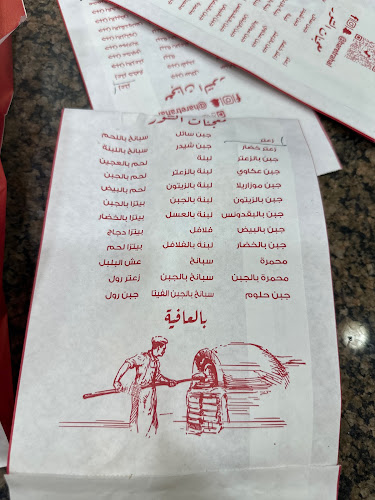 معجنات التنور
@haretrahal
زعتر
زعتر خضار
جبن بالزعتر
جبن عكاوي
جبن موزاريلا
جبن بالزيتون
جبن بالبقدونس
جبن بالبيض
جبن بالخضار
محمرة
محمرة بالجبن
جبن حلوم
جبن سائل
جبن شيدر
لبنة
لبنة بالزعتر
لبنة بالزيتون
لبنة بالجبن
لبنة بالعسل
فلافل
لبنة بالفلافل
سبانخ
سبانخ بالجبن
سبانخ بالجبن الفيتا
سبانخ باللحم
سبانخ باللبنة
لحم بالعجين
لحم بالجبن
لحم بالبيض
بيتزا بالجبن
بيتزا بالخضار
بيتزا دجاج
بيتزا لحم
عش البلبل
زعتر رول
جبن رول
بالعافية